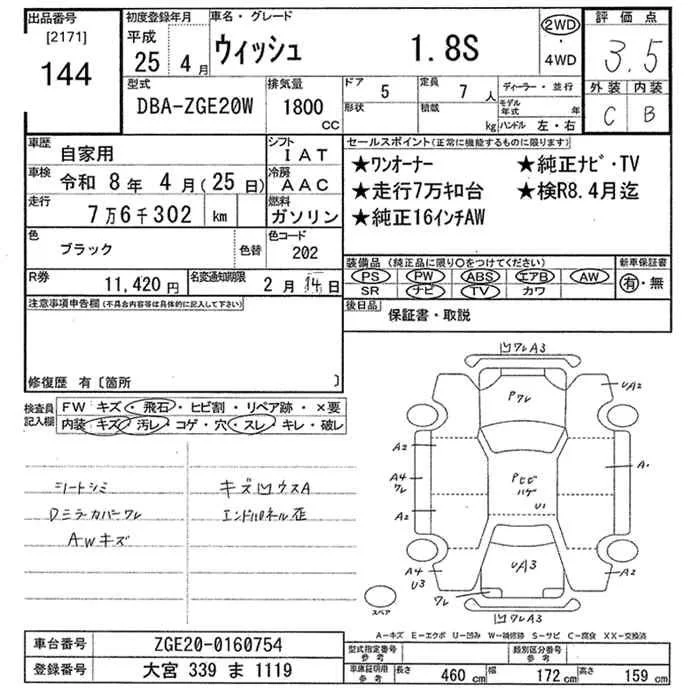 出品番号
[2171]
144
初度登録年月
平成
25 4月
車名・グレード
ウィッシュ 1.8S
2WD
・
4WD
評価点
3.5
外装 内装
C B
型式
DBA-ZGE20W
排気量
1800
CC
ドア
5
形状
定員
7人
積載
kg
ディーラー・並行
モデル
年式 年
ハンドル 左・右
車歴
自家用
シフト
IAT
車検
令和 8年 4月(25日)
冷房
AAC
走行
7万6千302 km
燃料
ガソリン
色
ブラック
色替
色コード
202
R券
11,420円
名変通知期限
2月14日
セールスポイント(正常に機能するものに限ります)
★ワンオーナー ★純正ナビ・TV
★走行7万キロ台 ★検R8.4月迄
★純正16インチAW
装備品 (純正品に限り○をつけてください)
PS PW ABS エアB AW
SR ナビ TV カワ
新車保証書
有・無
後日品
保証書・取説
注意事項申告欄 (不具合内容等は具体的に記入して下さい)
修復歴 有〔箇所 〕
検査員
記入欄
FW キズ・飛石・ヒビ割・リペア跡・×要
内装 キズ・汚レ・コゲ・穴・スレ・キレ・破レ
シートシミ
Dミラーカバーワレ
AWキズ
キズ凹ウスA
エンドパネル歪
凹ワレA3
Pワレ
UA2
A2
A4
ワレ
A2
Pヒビ
ハゲ
U1
A1
A4
U3
UA3
A2
ワレ
凹ワレA3
スペア
A−キズ E−エクボ U−凹み W−補修跡 S−サビ C−腐食 XX−交換済
車台番号
ZGE20-0160754
登録番号
大宮 339 ま 1119
型式指定番号
参考
類別区分番号
参考
車庫証明用
参考
長さ 460 cm
幅 172 cm
高さ 159 cm